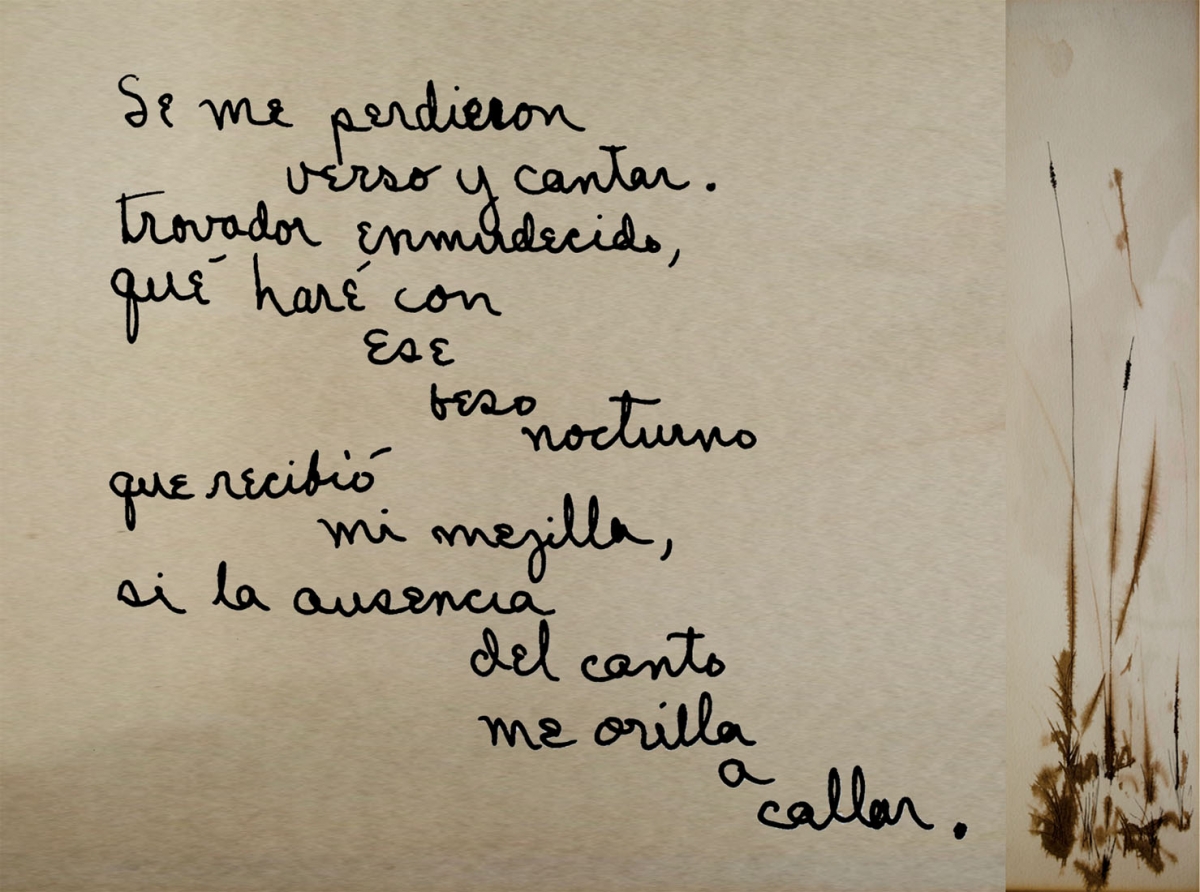 Se me perdieron
verso y cantar.
trovador enmudecido,
qué haré con
ese
beso
nocturno
que recibió
mi mejilla,
si la ausencia
del canto
me orilla
a
callar.